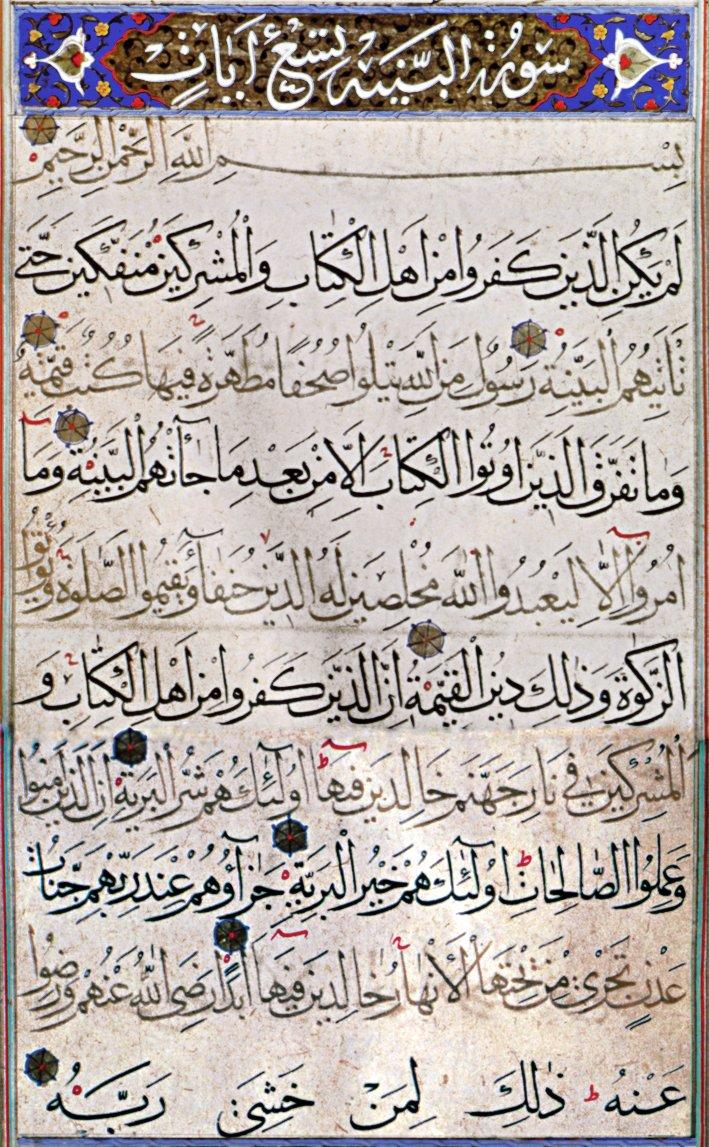 سورة البينة تسع آيات
بسم الله الرحمن الرحيم
لَمْ يَكُنِ الَّذِينَ كَفَرُوا مِنْ اَهْلِ الْكِتَابِ وَالْمُشْرِكِينَ مُنْفَكِّينَ حَتّٰى
تَاْتِيَهُمُ الْبَيِّنَةُ رَسُولٌ مِنَ اللهِ يَتْلُوا صُحُفًا مُطَهَّرَةً فِيهَا كُتُبٌ قَيِّمَةٌ
وَمَا تَفَرَّقَ الَّذِينَ اُوتُوا الْكِتَابَ اِلَّا مِنْ بَعْدِ مَا جَآءَتْهُمُ الْبَيِّنَةُ وَمَا
اُمِرُوا اِلَّا لِيَعْبُدُوا اللهَ مُخْلِصِينَ لَهُ الدِّينَ حُنَفَآءَ وَيُقِيمُوا الصَّلٰوةَ وَيُؤْتُوا
الزَّكٰوةَ وَذٰلِكَ دِينُ الْقَيِّمَةِ اِنَّ الَّذِينَ كَفَرُوا مِنْ اَهْلِ الْكِتَابِ وَ
الْمُشْرِكِينَ فِي نَارِ جَهَنَّمَ خَالِدِينَ فِيهَا اُولٰٓئِكَ هُمْ شَرُّ الْبَرِيَّةِ اِنَّ الَّذِينَ اٰمَنُوا
وَعَمِلُوا الصَّالِحَاتِ اُولٰٓئِكَ هُمْ خَيْرُ الْبَرِيَّةِ جَزَآؤُهُمْ عِنْدَ رَبِّهِمْ جَنَّاتُ
عَدْنٍ تَجْرِي مِنْ تَحْتِهَا الْاَنْهَارُ خَالِدِينَ فِيهَا اَبَدًا رَضِيَ اللهُ عَنْهُمْ وَرَضُوا
عَنْهُ ذٰلِكَ لِمَنْ خَشِيَ رَبَّهُ